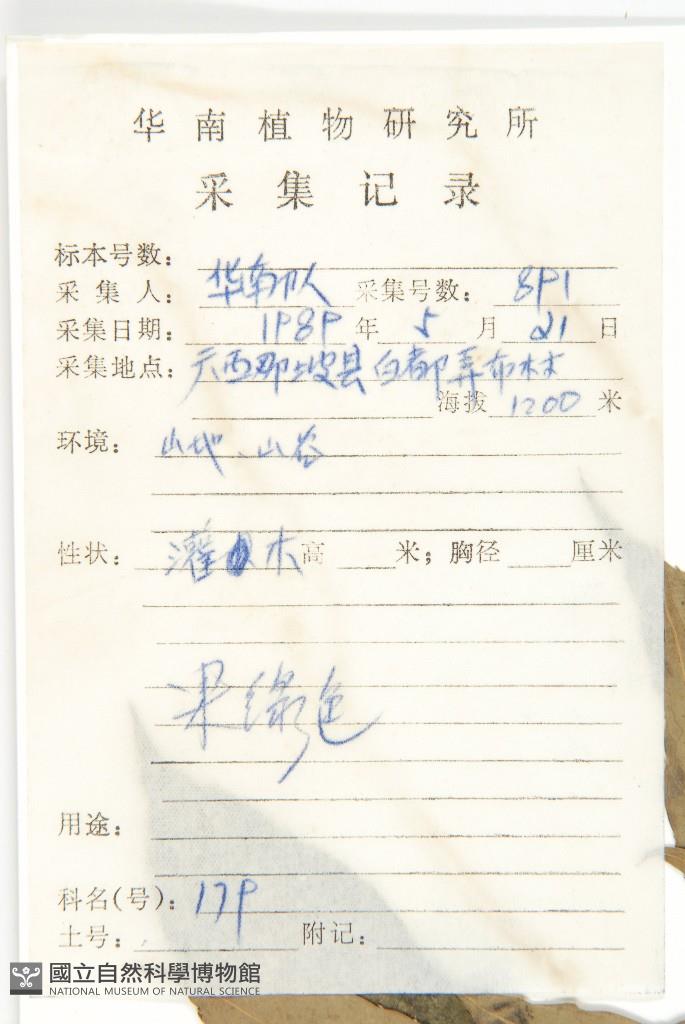 华南植物研究所
采集记录
标本号数：
采集人：华南队 采集号数：891
采集日期：1989年5月21日
采集地点：广西那坡县百都弄布林
海拨1200米
环境：山地、山谷
性状：灌木高 米；胸径 厘米
果绿色
用途：
科名(号)：179
土号： 附记：
國立自然科學博物館
NATIONAL MUSEUM OF NATURAL SCIENCE